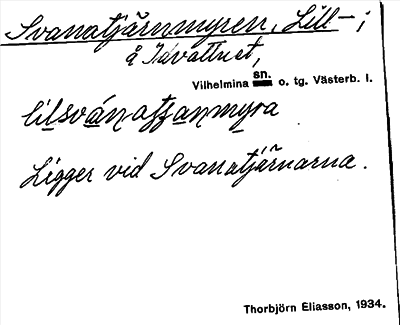 Svanatjärnmyren, Lill- ;
å Idvattnet,
Vilhelmina sn. o. tg. Västerb. l.
lilsvánatjanmyra
Ligger vid Svanatjärnarna.
Thorbjörn Eliasson, 1934.